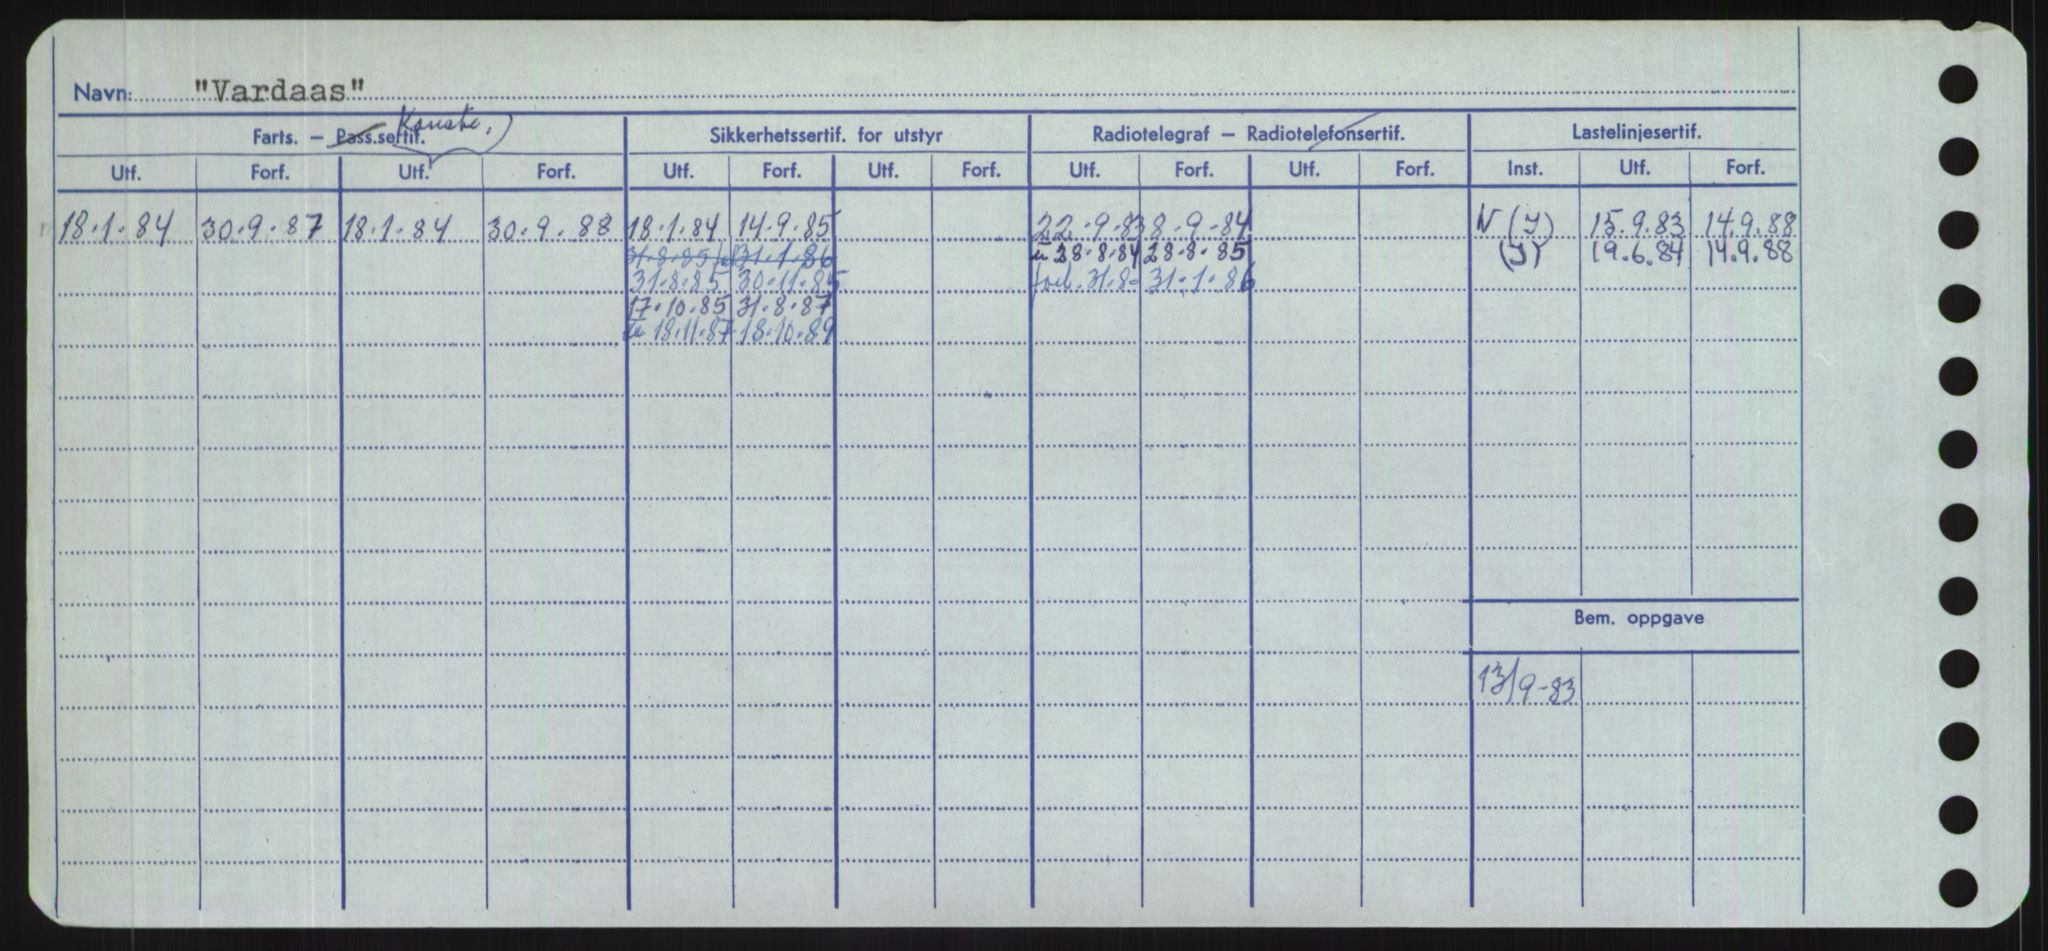 Navn: "Vardaas"
Farts. – Pass.sertif. Konstr. Sikkerhetssertif. for utstyr Radiotelegraf – Radiotelefonsertif. Lastelinjesertif.
Utf. Forf. Utf. Forf. Utf. Forf. Utf. Forf. Utf. Forf. Utf. Forf. Inst. Utf. Forf.
18.1.84 30.9.87 18.1.84 30.9.88 18.1.84 14.9.85 22.9.83 8.9.84 N (I) 15.9.83 14.9.88
31.8.85 31.1.86 28.8.84 28.8.85 (I) 19.6.84 14.9.88
31.8.85 30.11.85 forl. 31.8- 31.1.86
17.10.85 31.8.87
18.11.87 18.10.89
Bem. oppgave
13/9-83